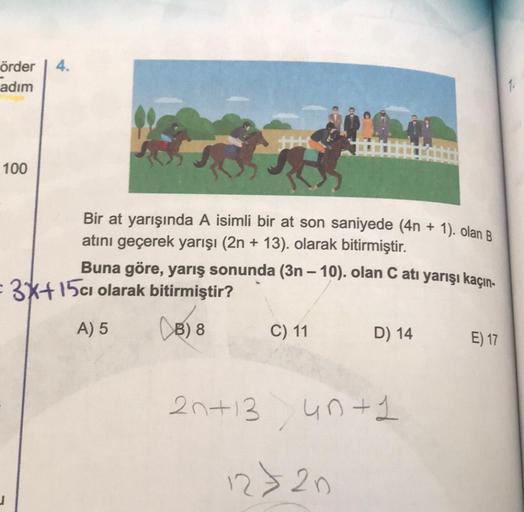 örder
adım
100
4.
Bir at yarışında A isimli bir at son saniyede (4n + 1). olan B
atını geçerek yarışı (2n + 13). olarak bitirmiştir.
Buna göre, yarış sonunda (3n – 10). olan C atı yarışı kaçın-
cı olarak bitirmiştir?
= 3x+15
A) 5 B) 8 C) 11 D) 14 E) 17
2n+13 > 4n+1
12 ≥ 2n
1.